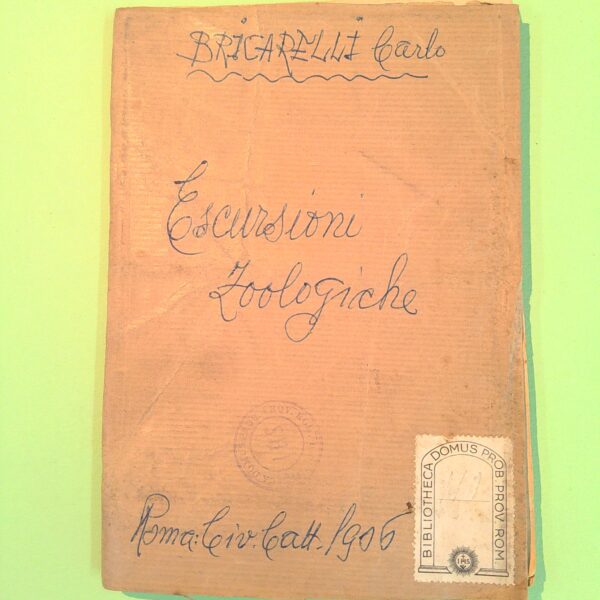 BRICARELLI Carlo
Escursioni
Zoologiche
Roma. Civ. Catt. 1906
BIBLIOTHECA DOMUS PROB. PROV. ROM.
IHS